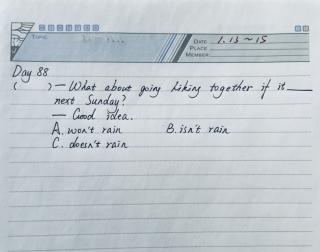 TOPIC
DATE 1.13~15
PLACE
MEMBER
Day 88
( ) — What about going hiking together if it ____
next Sunday?
— Good idea.
A. won't rain B. isn't rain
C. doesn't rain